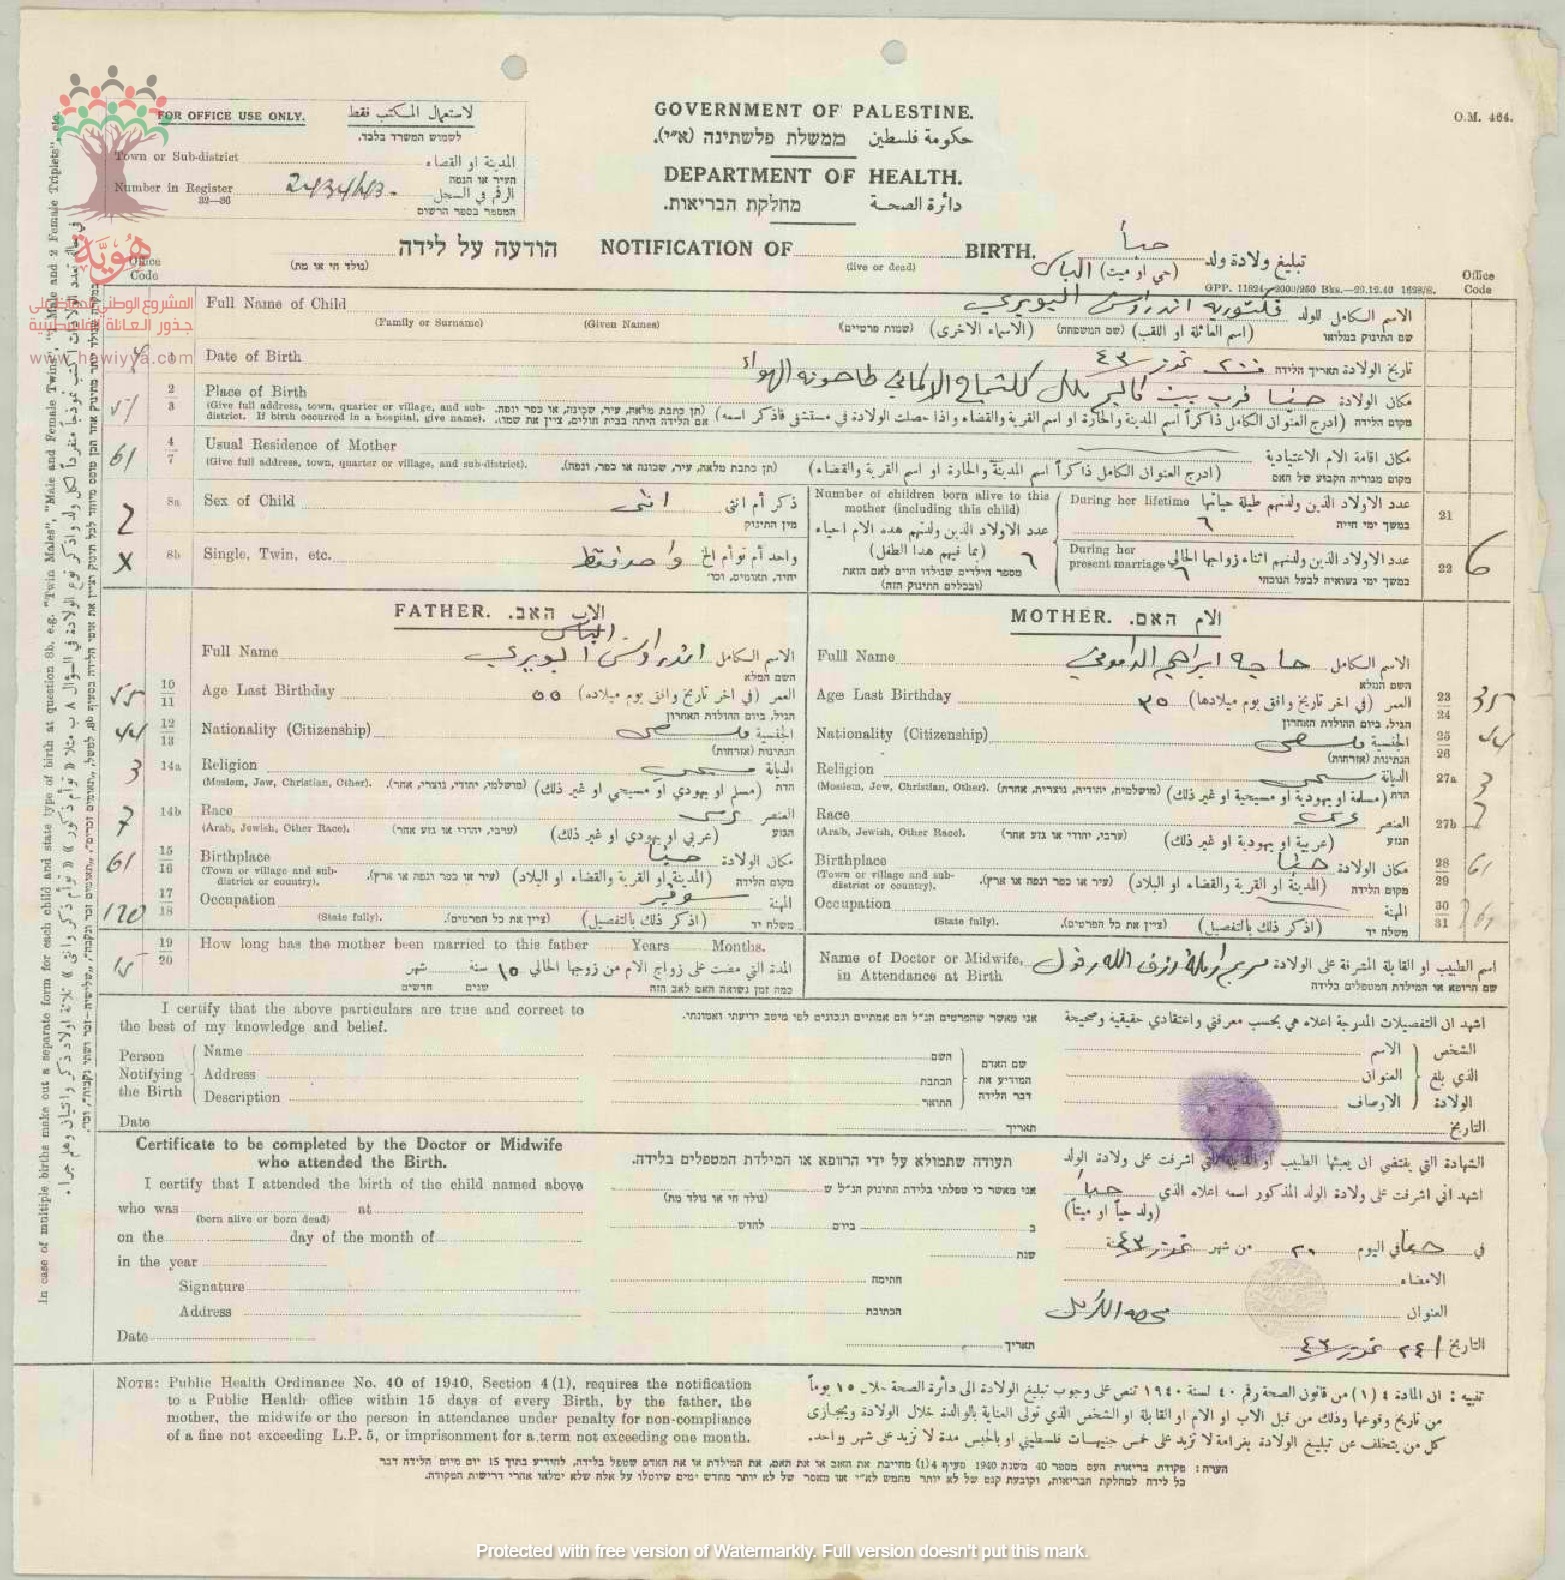 FOR OFFICE USE ONLY. لاستعمال المكتب فقط
לשמוש המשרד בלבד.
Town or Sub-district المدينة او القضاء
העיר או הנפה
Number in Register الرقم في السجل
המספר בספר הרשום
GOVERNMENT OF PALESTINE.
ממשלת פלשתינה (א״י). حكومة فلسطين
DEPARTMENT OF HEALTH.
מחלקת הבריאות. دائرة الصحة
O.M. 464.
הודעה על לידה NOTIFICATION OF BIRTH. تبليغ ولادة ولد حياً
(נולד חי או מת) (live or dead) (حي او ميت) الياس
GPP. 11824—2000/250 Bks.—20.12.40 1628/S.
Office Code
Office Code
هُويّة
المشروع الوطني للحفاظ على
جذور العائلة الفلسطينية
www.howiyya.com
Full Name of Child الاسم الكامل للولد فكتوريه اندراوس
(Family or Surname) (Given Names) (שמות פרטיים) (الاسماء الاخرى) (שם המשפחה) (اسم العائلة او اللقب) שם התינוק במלואו
1 Date of Birth تاريخ الولادة תאריך הלידה ٢٠ تموز ٤٣
2/3 Place of Birth مكان الولادة حيفا قرب بيت
(Give full address, town, quarter or village, and sub-district. If birth occurred in a hospital, give name). (תן כתבת מלאה, עיר, שכונה, או כפר ונפה. אם הלידה היתה בבית חולים, ציין את שמה). (ادرج العنوان الكامل ذاكراً اسم المدينة والحارة او اسم القرية والقضاء واذا حصلت الولادة في مستشفى فاذكر اسمه) מקום הלידה
61 4/7 Usual Residence of Mother مكان اقامة الام الاعتيادية
(Give full address, town, quarter or village, and sub-district). (תן כתבת מלאה, עיר, שכונה או כפר, ונפה). (ادرج العنوان الكامل ذاكراً اسم المدينة والحارة او اسم القرية والقضاء) מקום מגוריה הקבוע של האם
2 8a Sex of Child ذكر أم انثى انثى
מין התינוק
X 8b Single, Twin, etc. واحد أم توأم الخ واحد فقط
יחיד, תאומים, וכו׳
Number of children born alive to this mother (including this child)
عدد الاولاد الذين ولدتهم هذه الام احياء
(بما فيهم هذا الطفل) ٦
מספר הילדים שנולדו חיים לאם הזאת
(ובכללם התינוק הזה)
During her lifetime عدد الاولاد الذين ولدتهم طيلة حياتها 21
במשך ימי חייה ٦
During her present marriage عدد الاولاد الذين ولدتهم اثناء زواجها الحالي 22 6
במשך ימי נשואיה לבעל הנוכחי ٦
FATHER. الاب האב.
Full Name الاسم الكامل اندراوس الياس
השם המלא
55 10/11 Age Last Birthday العمر (في اخر تاريخ وافق يوم ميلاده) ٥٥
הגיל, ביום ההולדת האחרון
44 12/13 Nationality (Citizenship) الجنسية فلسطيني
הנתינות (אזרחות)
3 14a Religion الديانة مسيحي
(Moslem, Jew, Christian, Other). (מושלמי, יהודי, נוצרי, אחר). (مسلم او يهودي او مسيحي او غير ذلك) הדת
7 14b Race العنصر عربي
(Arab, Jewish, Other Race). (ערבי, יהודי או גזע אחר) (عربي او يهودي او غير ذلك) הגזע
61 15/16 Birthplace مكان الولادة حيفا
(Town or village and sub-district or country). (עיר או כפר ונפה או ארץ). (المدينة او القرية والقضاء او البلاد) מקום הלידה
120 17/18 Occupation المهنة شوفير
(State fully). (ציין את כל הפרטים). (اذكر ذلك بالتفصيل) משלח יד
15 19/20 How long has the mother been married to this father Years Months.
المدة التي مضت على زواج الام من زوجها الحالي ١٥ سنة شهر
כמה זמן נשואה האם לאב הזה שנים חדשים
MOTHER. الام האם.
Full Name الاسم الكامل ابراهيم الداموني
השם המלא
Age Last Birthday العمر (في اخر تاريخ وافق يوم ميلادها) ٣٥ 23/24 35
הגיל, ביום ההולדת האחרון
Nationality (Citizenship) الجنسية فلسطيني 25/26 44
הנתינות (אזרחות)
Religion الديانة مسيحي 27a 3
(Moslem, Jew, Christian, Other). (מושלמית, יהודיה, נוצריה, אחרת) (مسلمة او يهودية او مسيحية او غير ذلك) הדת
Race العنصر عربي 27b
(Arab, Jewish, Other Race). (ערבי, יהודי או גזע אחר) (عربية او يهودية او غير ذلك) הגזע
Birthplace مكان الولادة حيفا 28/29 61
(Town or village and sub-district or country). (עיר או כפר ונפה או ארץ). (المدينة او القرية والقضاء او البلاد) מקום הלידה
Occupation المهنة 30/31 61
(State fully). (ציין את כל הפרטים). (اذكر ذلك بالتفصيل) משלח יד
Name of Doctor or Midwife, in Attendance at Birth اسم الطبيب او القابلة المشرفة على الولادة مريم ارملة رزق الله
שם הרופא או המילדת המטפלים בלידה
I certify that the above particulars are true and correct to the best of my knowledge and belief.
אני מאשר שהפרטים הנ״ל הם אמתיים ונכונים לפי מיטב ידיעתי ואמונתי.
اشهد ان التفصيلات المدرجة اعلاه هي بحسب معرفتي واعتقادي حقيقية وصحيحة
Person Notifying the Birth
Name השם الاسم
Address הכתבת العنوان
Description התואר الاوصاف
שם האדם המודיע את דבר הלידה
الشخص الذي بلغ الولادة
Date תאריך التاريخ
Certificate to be completed by the Doctor or Midwife who attended the Birth.
תעודה שתמולא על ידי הרופא או המילדת המטפלים בלידה.
الشهادة التي يقتضي ان يعبئها الطبيب او القابلة التي اشرفت على ولادة الولد
I certify that I attended the birth of the child named above
who was at
(born alive or born dead)
on the day of the month of
in the year
Signature
Address
Date
אני מאשר כי טפלתי בלידת התינוק הנ״ל ש
(נולד חי או נולד מת)
ב ביום לחדש
שנת
חתימה
הכתובת
תאריך
اشهد اني اشرفت على ولادة الولد المذكور اسمه اعلاه الذي حياً
(ولد حياً او ميتاً)
في حيفا في اليوم ٢٠ من شهر تموز سنة ٤٣
الامضاء
العنوان محطة الكرمل
التاريخ ٢٤ تموز ٤٣
NOTE: Public Health Ordinance No. 40 of 1940, Section 4 (1), requires the notification
to a Public Health office within 15 days of every Birth, by the father, the
mother, the midwife or the person in attendance under penalty for non-compliance
of a fine not exceeding L.P. 5, or imprisonment for a term not exceeding one month.
تنبيه : ان المادة ٤ (١) من قانون الصحة رقم ٤٠ لسنة ١٩٤٠ تنص على وجوب تبليغ الولادة الى دائرة الصحة خلال ١٥ يوماً
من تاريخ وقوعها وذلك من قبل الاب او الام او القابلة او الشخص الذي تولى العناية بالوالدة خلال الولادة ويجازى
كل من يتخلف عن تبليغ الولادة بغرامة لا تزيد على خمس جنيهات فلسطيني او بالحبس مدة لا تزيد على شهر واحد.
הערה: פקודת בריאות העם מספר 40 משנת 1940 סעיף 4(1) מחייבת את האב או את האם, את המילדת או את האדם שטפל בלידה, להודיע בתוך 15 יום מיום הלידה דבר
כל לידה למחלקת הבריאות, וקובעת קנס של לא יותר מחמש לא״י או מאסר של לא יותר מחדש ימים שיוטלו על אלה שלא ימלאו אחרי דרישות הפקודה.
Protected with free version of Watermarkly. Full version doesn't put this mark.